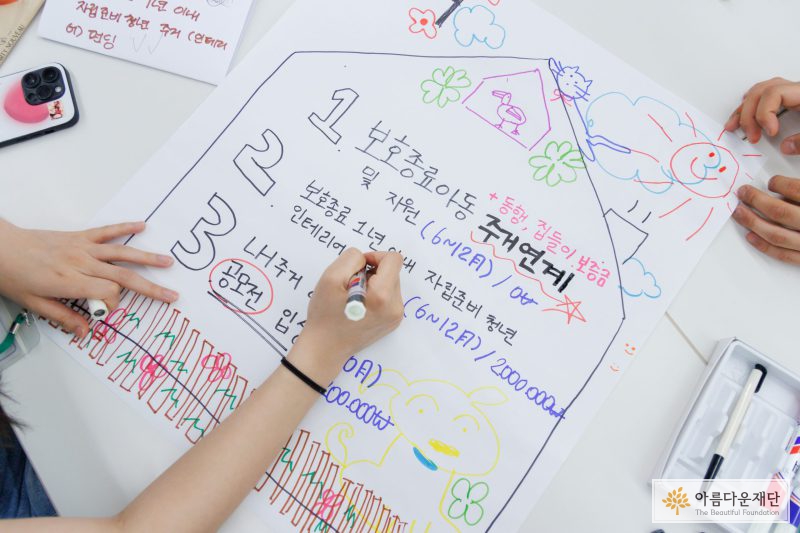 년 이내
자립준비청년 주거 (인테리
어) 펀딩
1
보호종료아동
및 자원 (6~12月) / 0₩
+ 동행, 집들이 보증금
주거연계
2
보호종료 1년 이내 자립준비청년
인테리어
(6~12月) / 2000.000₩
3
LH주거
공모전
00.000₩
아름다운재단
The Beautiful Foundation